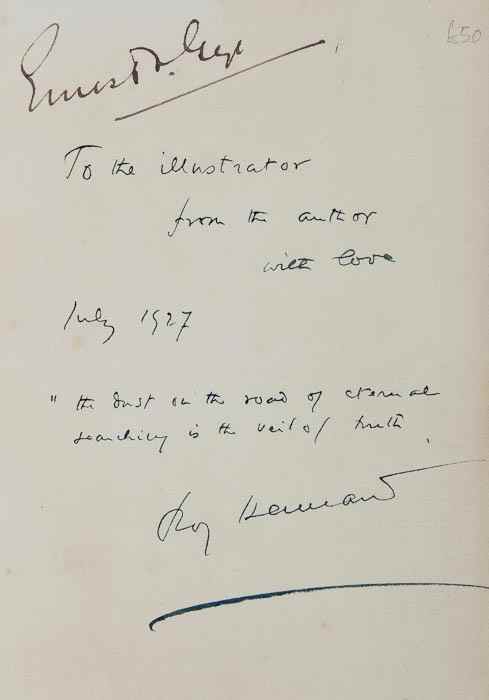 £50
Ernest
To the illustrator
from the author
with love
July 1927
" the dust on the road of eternal
searching is the veil of truth
Roy